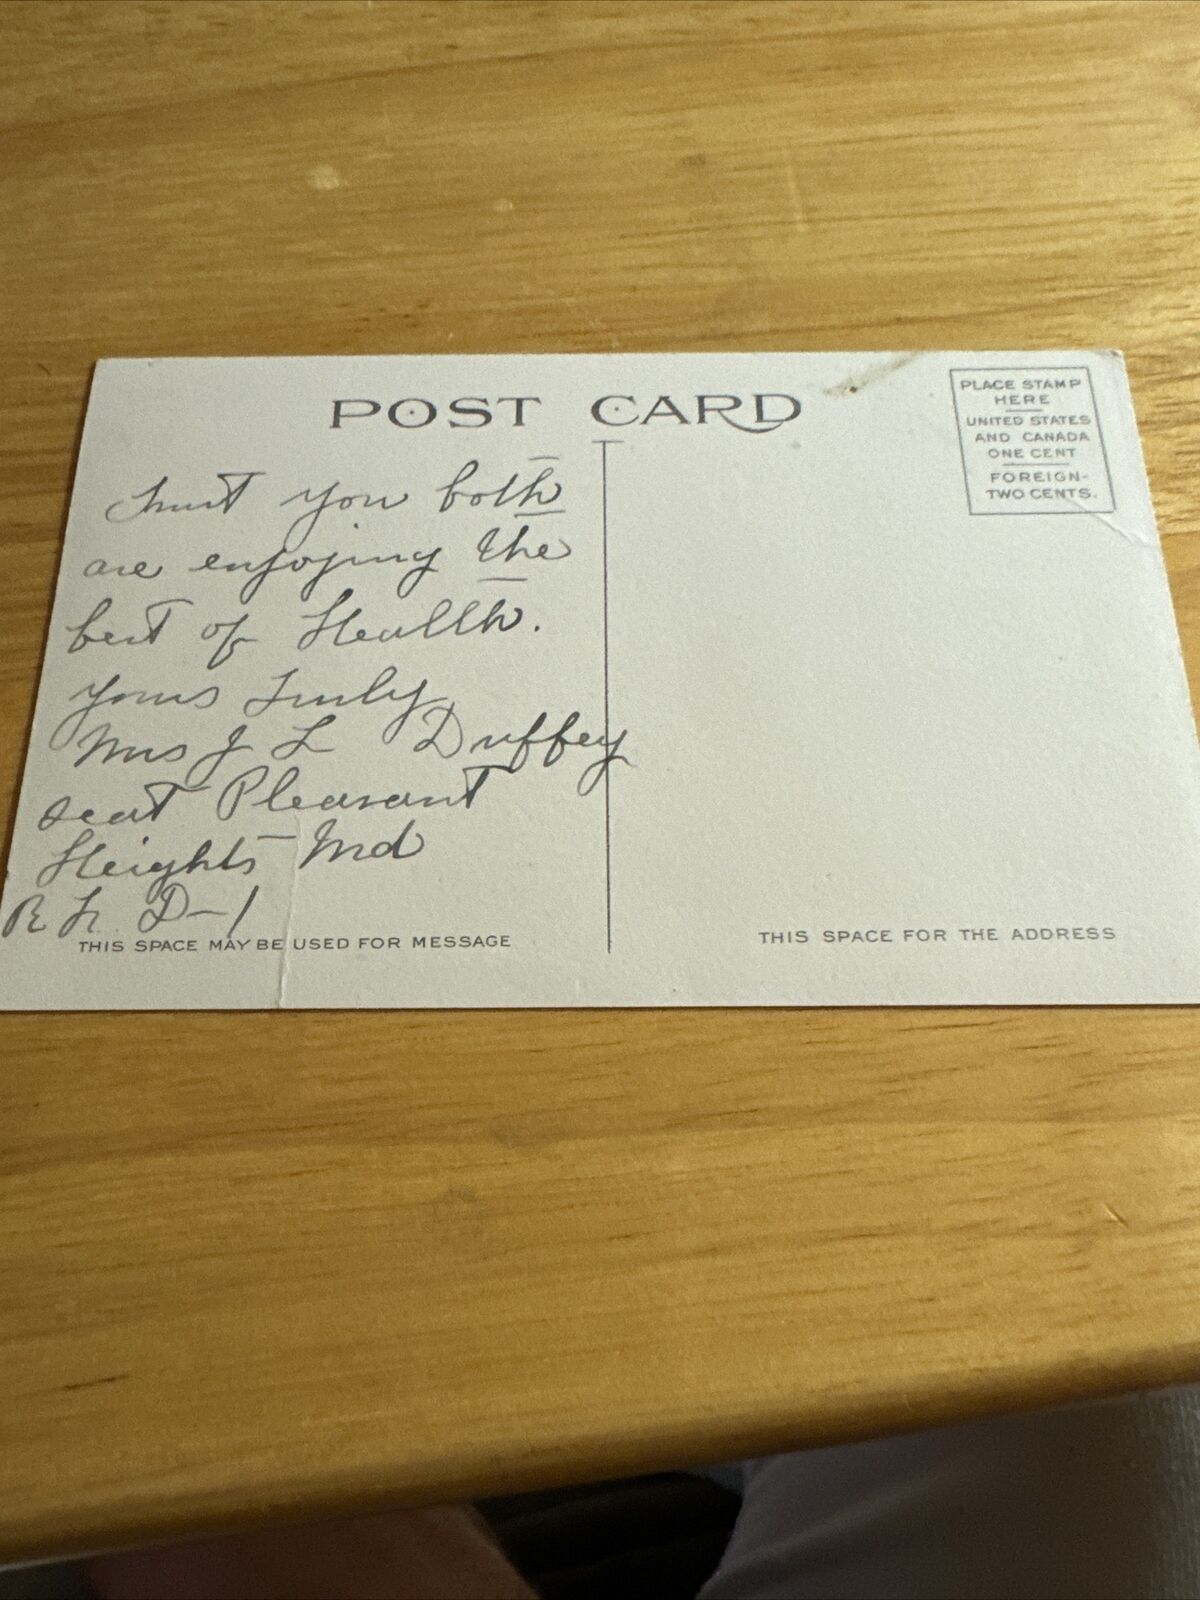 POST CARD
PLACE STAMP
HERE
UNITED STATES
AND CANADA
ONE CENT
FOREIGN-
TWO CENTS.
Trust you both
are enjoying the
best of Health.
yours Truly
Mrs J L Duffey
seat Pleasant
Heights Md
R F. D-1
THIS SPACE MAY BE USED FOR MESSAGE
THIS SPACE FOR THE ADDRESS